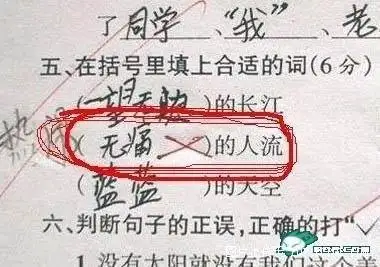 了同学、“我”、老
五、在括号里填上合适的词(6分)
(一望无边)的长江
热闹(无痛)的人流
(蓝蓝)的天空
六、判断句子的正误,正确的打“√
1.没有太阳就没有我们这个美